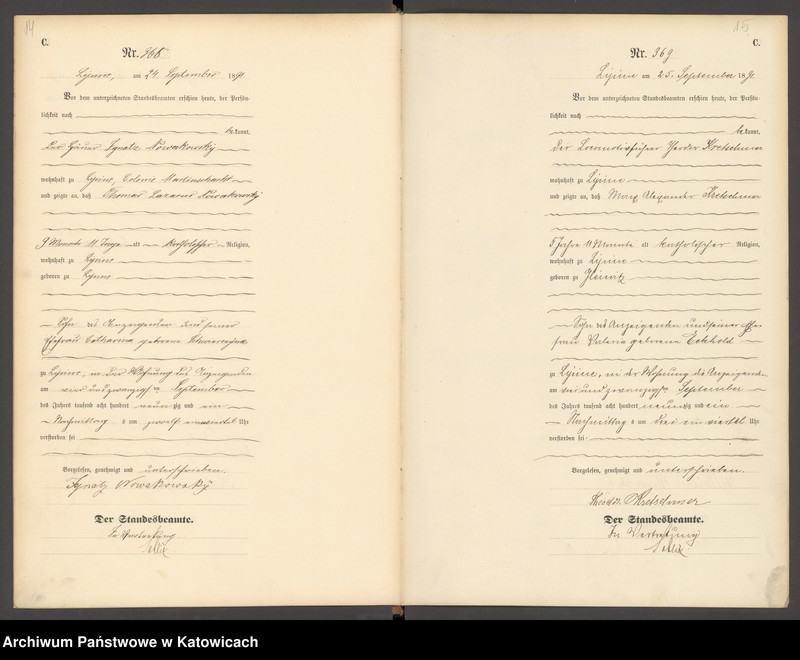 14
C.
Nr. 368
Lipine, am 24 September 1891.
Vor dem unterzeichneten Standesbeamten erschien heute, der Persön-
lichkeit nach
bekannt,
Der Häuer Ignatz Nowakowsky
wohnhaft zu Lipine, Colonie Martinschacht
und zeigte an, daß Thomas Lazarus Nowakowsky
9 Monate 11 Tage alt katholischer Religion,
wohnhaft zu Lipine
geboren zu Lipine
Sohn des Anzeigenden und seiner
Ehefrau Catharina geborene
zu Lipine, in der Wohnung des Anzeigenden
am vierundzwanzigsten September
des Jahres tausend acht hundert neunzig und ein
Nachmittag s um zwölf einviertel Uhr
verstorben sei
Vorgelesen, genehmigt und unterschrieben.
Ignatz Nowakowsky
Der Standesbeamte.
In Vertretung
15
C.
Nr. 369
Lipine am 25. September 1891.
Vor dem unterzeichneten Standesbeamten erschien heute, der Persön-
lichkeit nach
bekannt,
Der Locomotivführer Kretschmer
wohnhaft zu Lipine
und zeigte an, daß Max Alexander Kretschmer
5 Jahre 11 Monate alt katholischer Religion,
wohnhaft zu Lipine
geboren zu Gleiwitz
Sohn des Anzeigenden und seiner Ehe-
frau Valeria geborene Eckhold
zu Lipine, in der Wohnung des Anzeigenden
am vierundzwanzigsten September
des Jahres tausend acht hundert neunzig und ein
Nachmittag s um drei einviertel Uhr
verstorben sei
Vorgelesen, genehmigt und unterschrieben.
Kretschmer
Der Standesbeamte.
In Vertretung
Archiwum Państwowe w Katowicach